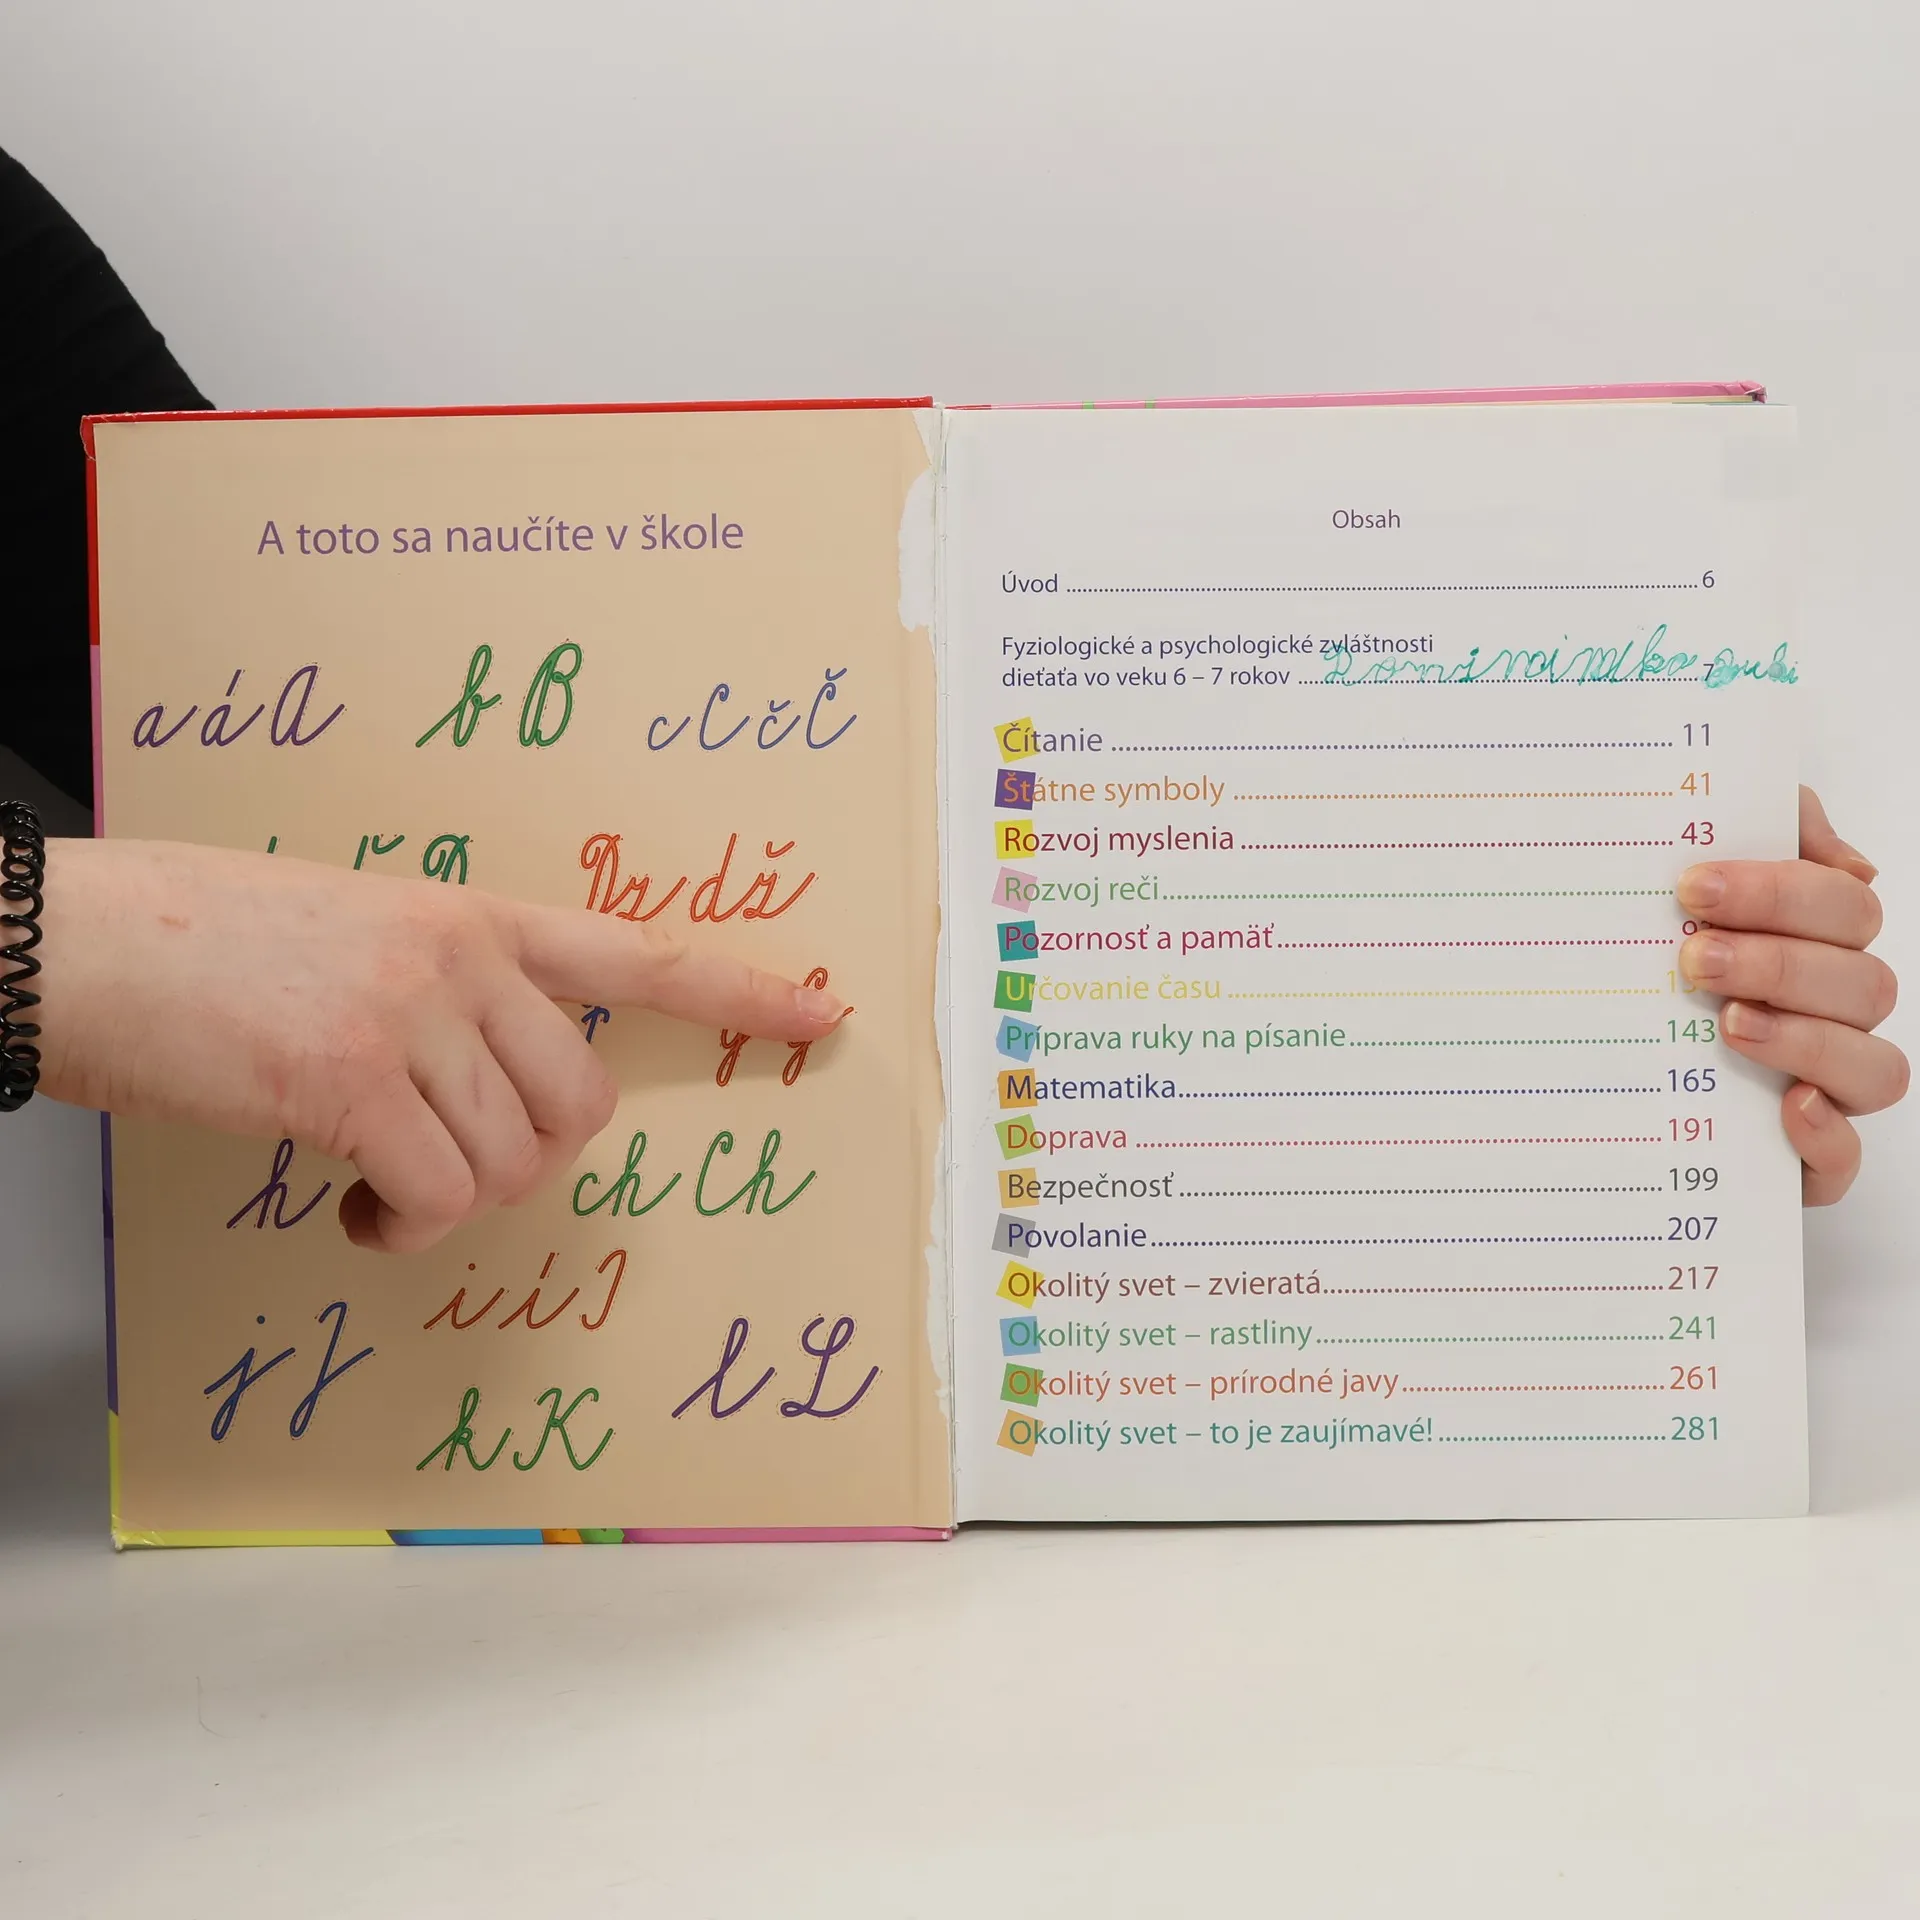 A toto sa naučíte v škole
a á A b B c C č Č
Dz dž
h ch Ch
i í I
j J l L
k K
Obsah
Úvod ........ 6
Fyziologické a psychologické zvláštnosti
dieťaťa vo veku 6 – 7 rokov ........ 7
Čítanie ........ 11
Štátne symboly ........ 41
Rozvoj myslenia ........ 43
Rozvoj reči ........
Pozornosť a pamäť ........
Určovanie času ........
Príprava ruky na písanie ........ 143
Matematika ........ 165
Doprava ........ 191
Bezpečnosť ........ 199
Povolanie ........ 207
Okolitý svet – zvieratá ........ 217
Okolitý svet – rastliny ........ 241
Okolitý svet – prírodné javy ........ 261
Okolitý svet – to je zaujímavé! ........ 281